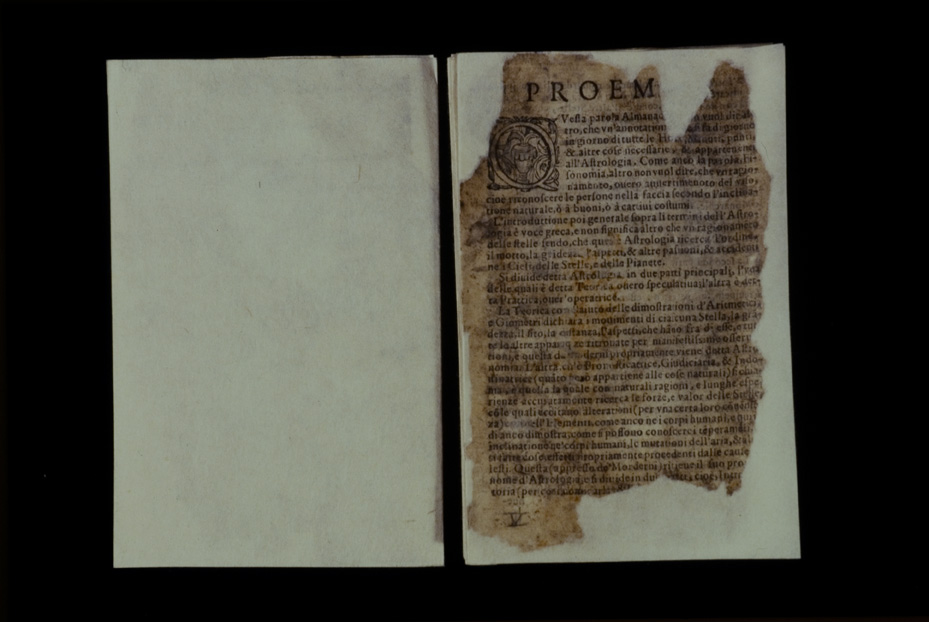 PROEM
Vesta parola Almana
tro, che vn'annotation di giorno
in giorno di tutte le
& altre cose necessarie, & appartenenti
all'Astrologia. Come anco la parola Fi-
sonomia, altro non vuol dire, che vn ragio-
namento, ouero auuertimento del
cioè riconoscere le persone nella faccia secondo l'inclina-
tione naturale, ò à buoni, ò à cattiui costumi.
L'introduttione poi generale sopra li termini dell'Astro-
logia è voce greca, e non significa altro che vn ragionamento
delle stelle sendo, che questa Astrologia ricerca
il motto, la & altre passioni, & accidenti
ne i Cieli, delle Stelle, e delle Pianete.
Si diuide detta Astrologia in due parti principali, l'vna
delle quali è detta Teorica ouero speculatiua l'altra è det-
ta Prattica, ouer'operatrice.
La Teorica con l'aiuto delle dimostrationi d'Aritmetica
e Giometri dichiara i mouimenti di ciascuna Stella, la gra
dezza, il sito, la distanza, l'aspetti, che hãno fra di esse, e tut
te le altre ritrouate per manifestissime osserua
tioni, e questa da moderni propriamente viene detta Astro
nomia. L'altra, ch'è Pronosticatrice, Giudiciaria, & Indo
uinatrice (quãto però appartiene alle cose naturali)
ma, è quella la quale con naturali ragioni, e lunghe espe
rienze accuratamente ricerca le forze, e valor delle Stelle
quali eccitano alterationi (per vna certa loro
za) Elementi, come anco ne i corpi humani, e qui
di anco dimostra, come si possono conoscere i
inclinatione ne' corpi humani, le mutationi dell'aria, & al
tre cose, propriamente procedenti dalle cause
lesti. Questa (appresso de' Moderni) ritiene il suo pro
nome d'Astrologia, e si diuide in due cioè, Intro
toria (per